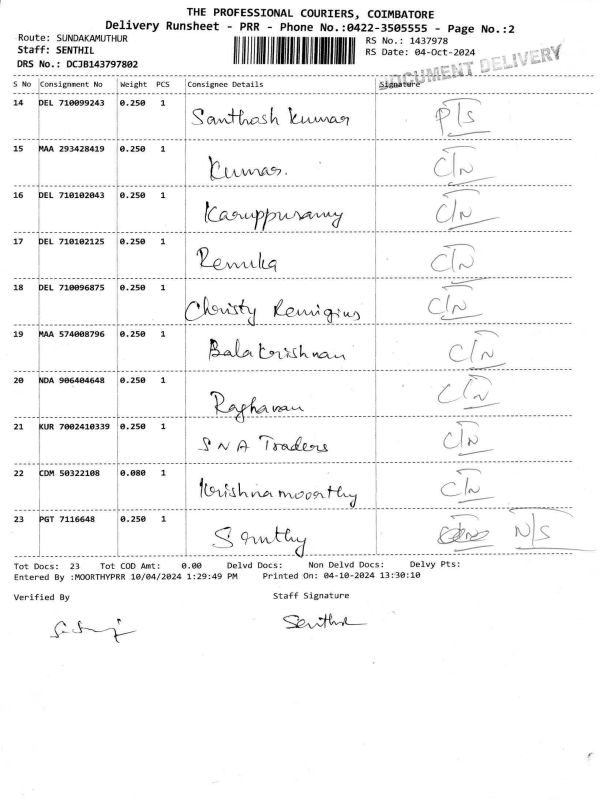 THE PROFESSIONAL COURIERS, COIMBATORE
Delivery Runsheet - PRR - Phone No.:0422-3505555 - Page No.:2
Route: SUNDAKAMUTHUR
RS No.: 1437978
Staff: SENTHIL
RS Date: 04-Oct-2024
DRS No.: DCJB143797802
DOCUMENT DELIVERY
S No Consignment No Weight PCS Consignee Details Signature
14 DEL 710099243 0.250 1 Santhosh Kumar P/S
15 MAA 293428419 0.250 1 Kumar. C/N
16 DEL 710102043 0.250 1 Karuppusamy C/N
17 DEL 710102125 0.250 1 Remuka C/N
18 DEL 710096875 0.250 1 Christy Remigius C/N
19 MAA 574008796 0.250 1 Balakrishnan C/N
20 NDA 906404648 0.250 1 Raghavan C/N
21 KUR 7002410339 0.250 1 SNA Traders C/N
22 CDM 50322108 0.080 1 Krishnamoorthy C/N
23 PGT 7116648 0.250 1 N/S
Tot Docs: 23 Tot COD Amt: 0.00 Delvd Docs: Non Delvd Docs: Delvy Pts:
Entered By :MOORTHYPRR 10/04/2024 1:29:49 PM Printed On: 04-10-2024 13:30:10
Verified By Staff Signature
Senthil